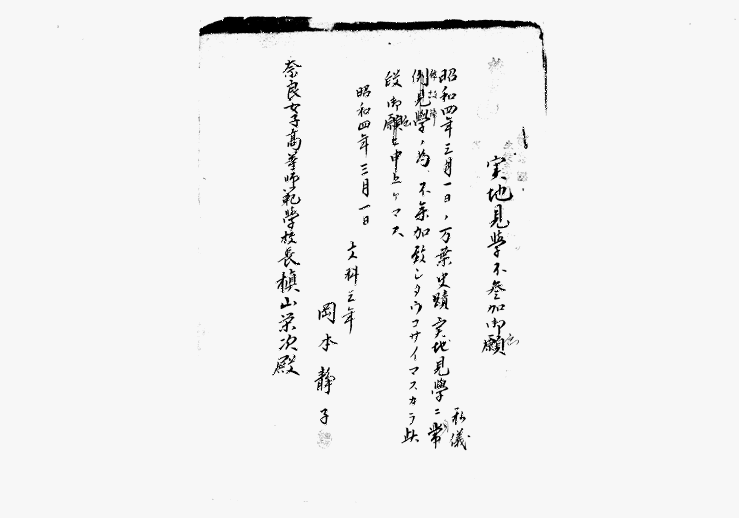 実地見学不参加御願
私儀
昭和四年三月一日、万葉史蹟実地見学ニ常
例見学ノ為、不参加致シタウゴサイマスカラ此
段御願ヒ申上ゲマス
昭和四年三月一日
文科三年
岡本静子
奈良女子高等師範學校長槇山栄次殿